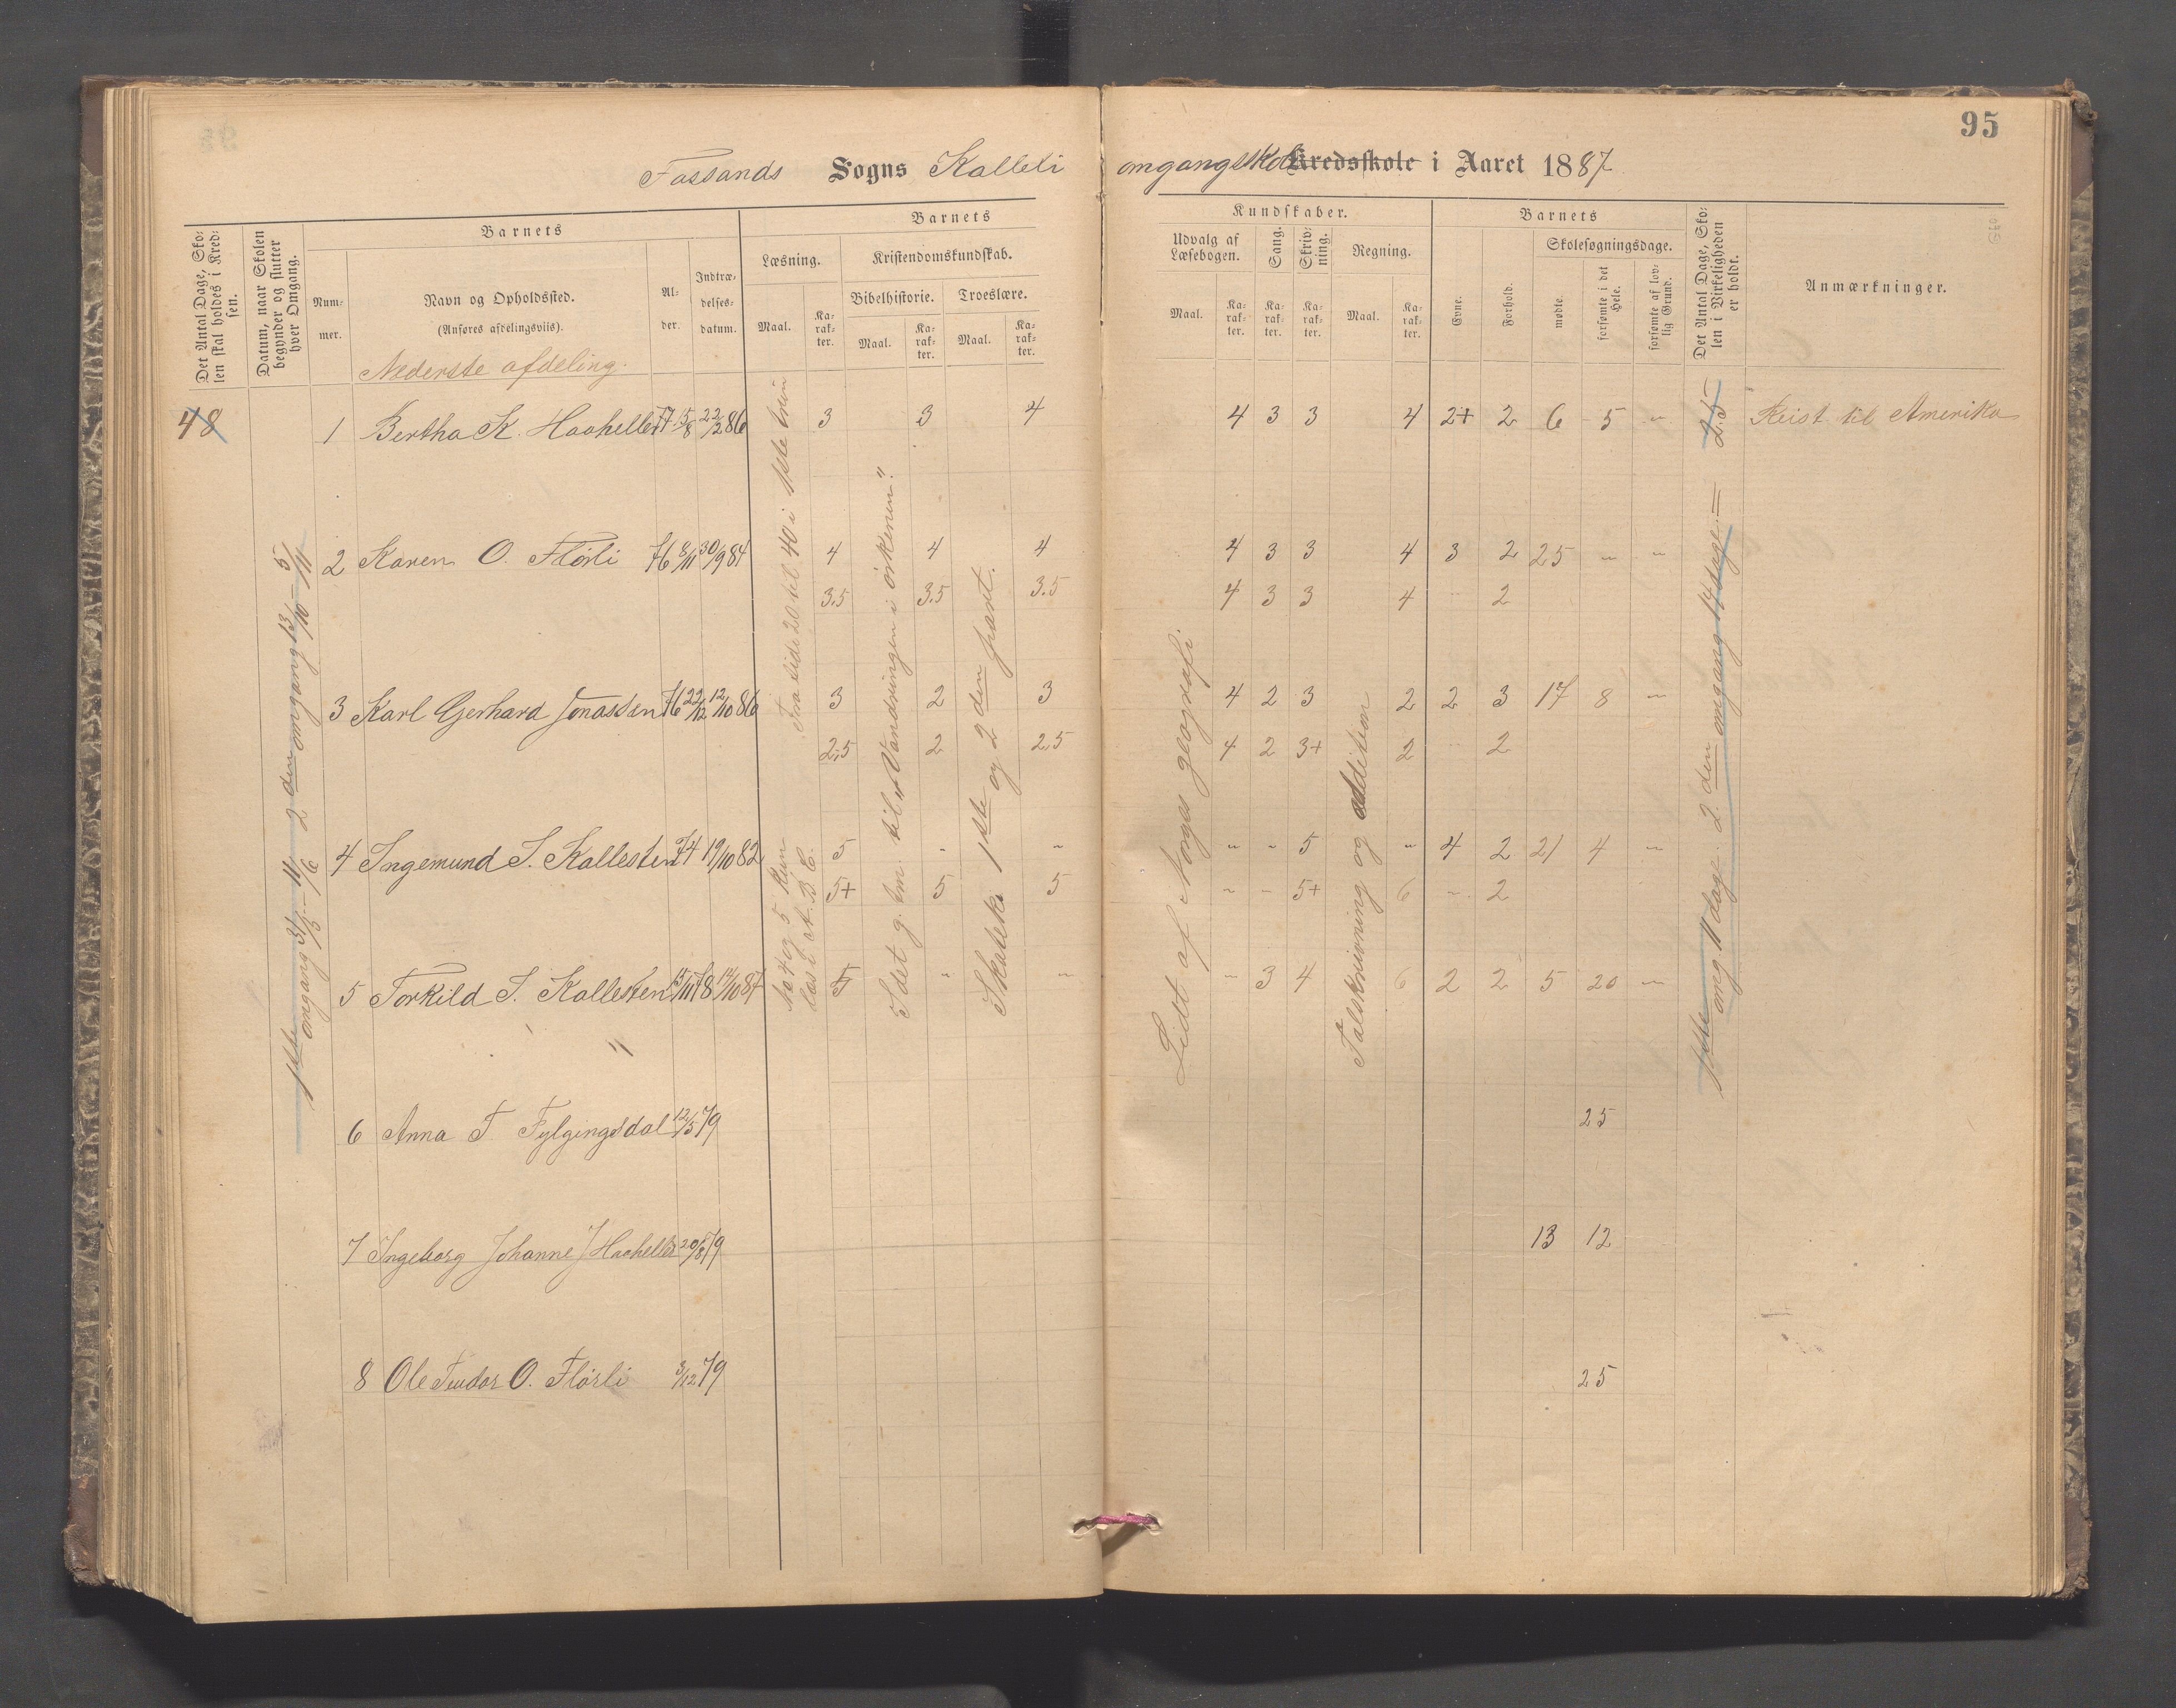 95
Fossands Sogns Kalleli omgangskole Kredsskole i Aaret 1887
Det Antal Dage, Skolen skal holdes i Kredsen.
Datum, naar Skolen begynder og slutter hver Omgang.
Barnets
Nummer.
Navn og Opholdssted.
(Anføres afdelingsviis).
Alder.
Indtrædelsesdatum.
Barnets
Læsning.
Maal.
Karakter.
Kristendomskundskab.
Bibelhistorie.
Maal.
Karakter.
Troeslære.
Maal.
Karakter.
Kundskaber.
Udvalg af Læsebogen.
Maal.
Karakter.
Sang.
Karakter.
Skrivning.
Karakter.
Regning.
Maal.
Karakter.
Barnets
Evne.
Forhold.
Skolesøgningsdage.
mødte.
forsømte i det Hele.
forsømte af lovlig Grund.
Det Antal Dage, Skolen i Virkeligheden er holdt.
Anmærkninger.
Nederste afdeling.
48 1 Bertha K. Haaheller 77 5/8 22/2 86 3 3 4 4 3 3 4 2+ 2 6 5 " 25 Reist til Amerika
2 Karen O. Flörli 76 8/11 30/9 84 4 4 4 4 3 3 4 3 2 25 " "
3.5 3.5 3.5 4 3 3 4 2
3 Karl Gerhard Jonassen 76 22/12 12/10 86 3 2 3 4 2 3 2 2 3 17 8 "
2,5 2 2,5 4 2 3+ 2 2
4 Ingemund S. Kallesten 74 19/10 82 5 " " " " 5 " 4 2 21 4 "
5+ 5 5 " - 5+ 6 " 2
5 Torkild S. Kallesten 14/11 78 14/10 87 5 " " " 3 4 6 2 2 5 20 "
6 Anna T. Fylgingsdal 12/5 79 25
7 Ingeborg Johanne J Haaheller 20/8 79 13 12
8 Ole Tudor O. Flörli 3/12 79 25
1ste omgang 31/5 – 11/6 2den omgang 13/10 – 5/11
Fra side 20 til 40 i 1ste trin
No 4 og 5 kun læst A.B.C.
I det g. tm. til „Vandringen i örkenen."
1ste og 2den part.
Lidt af Norges geografi.
Talskrivning og addition
1ste omg 11 dage. 2den omgang 14 dage. =